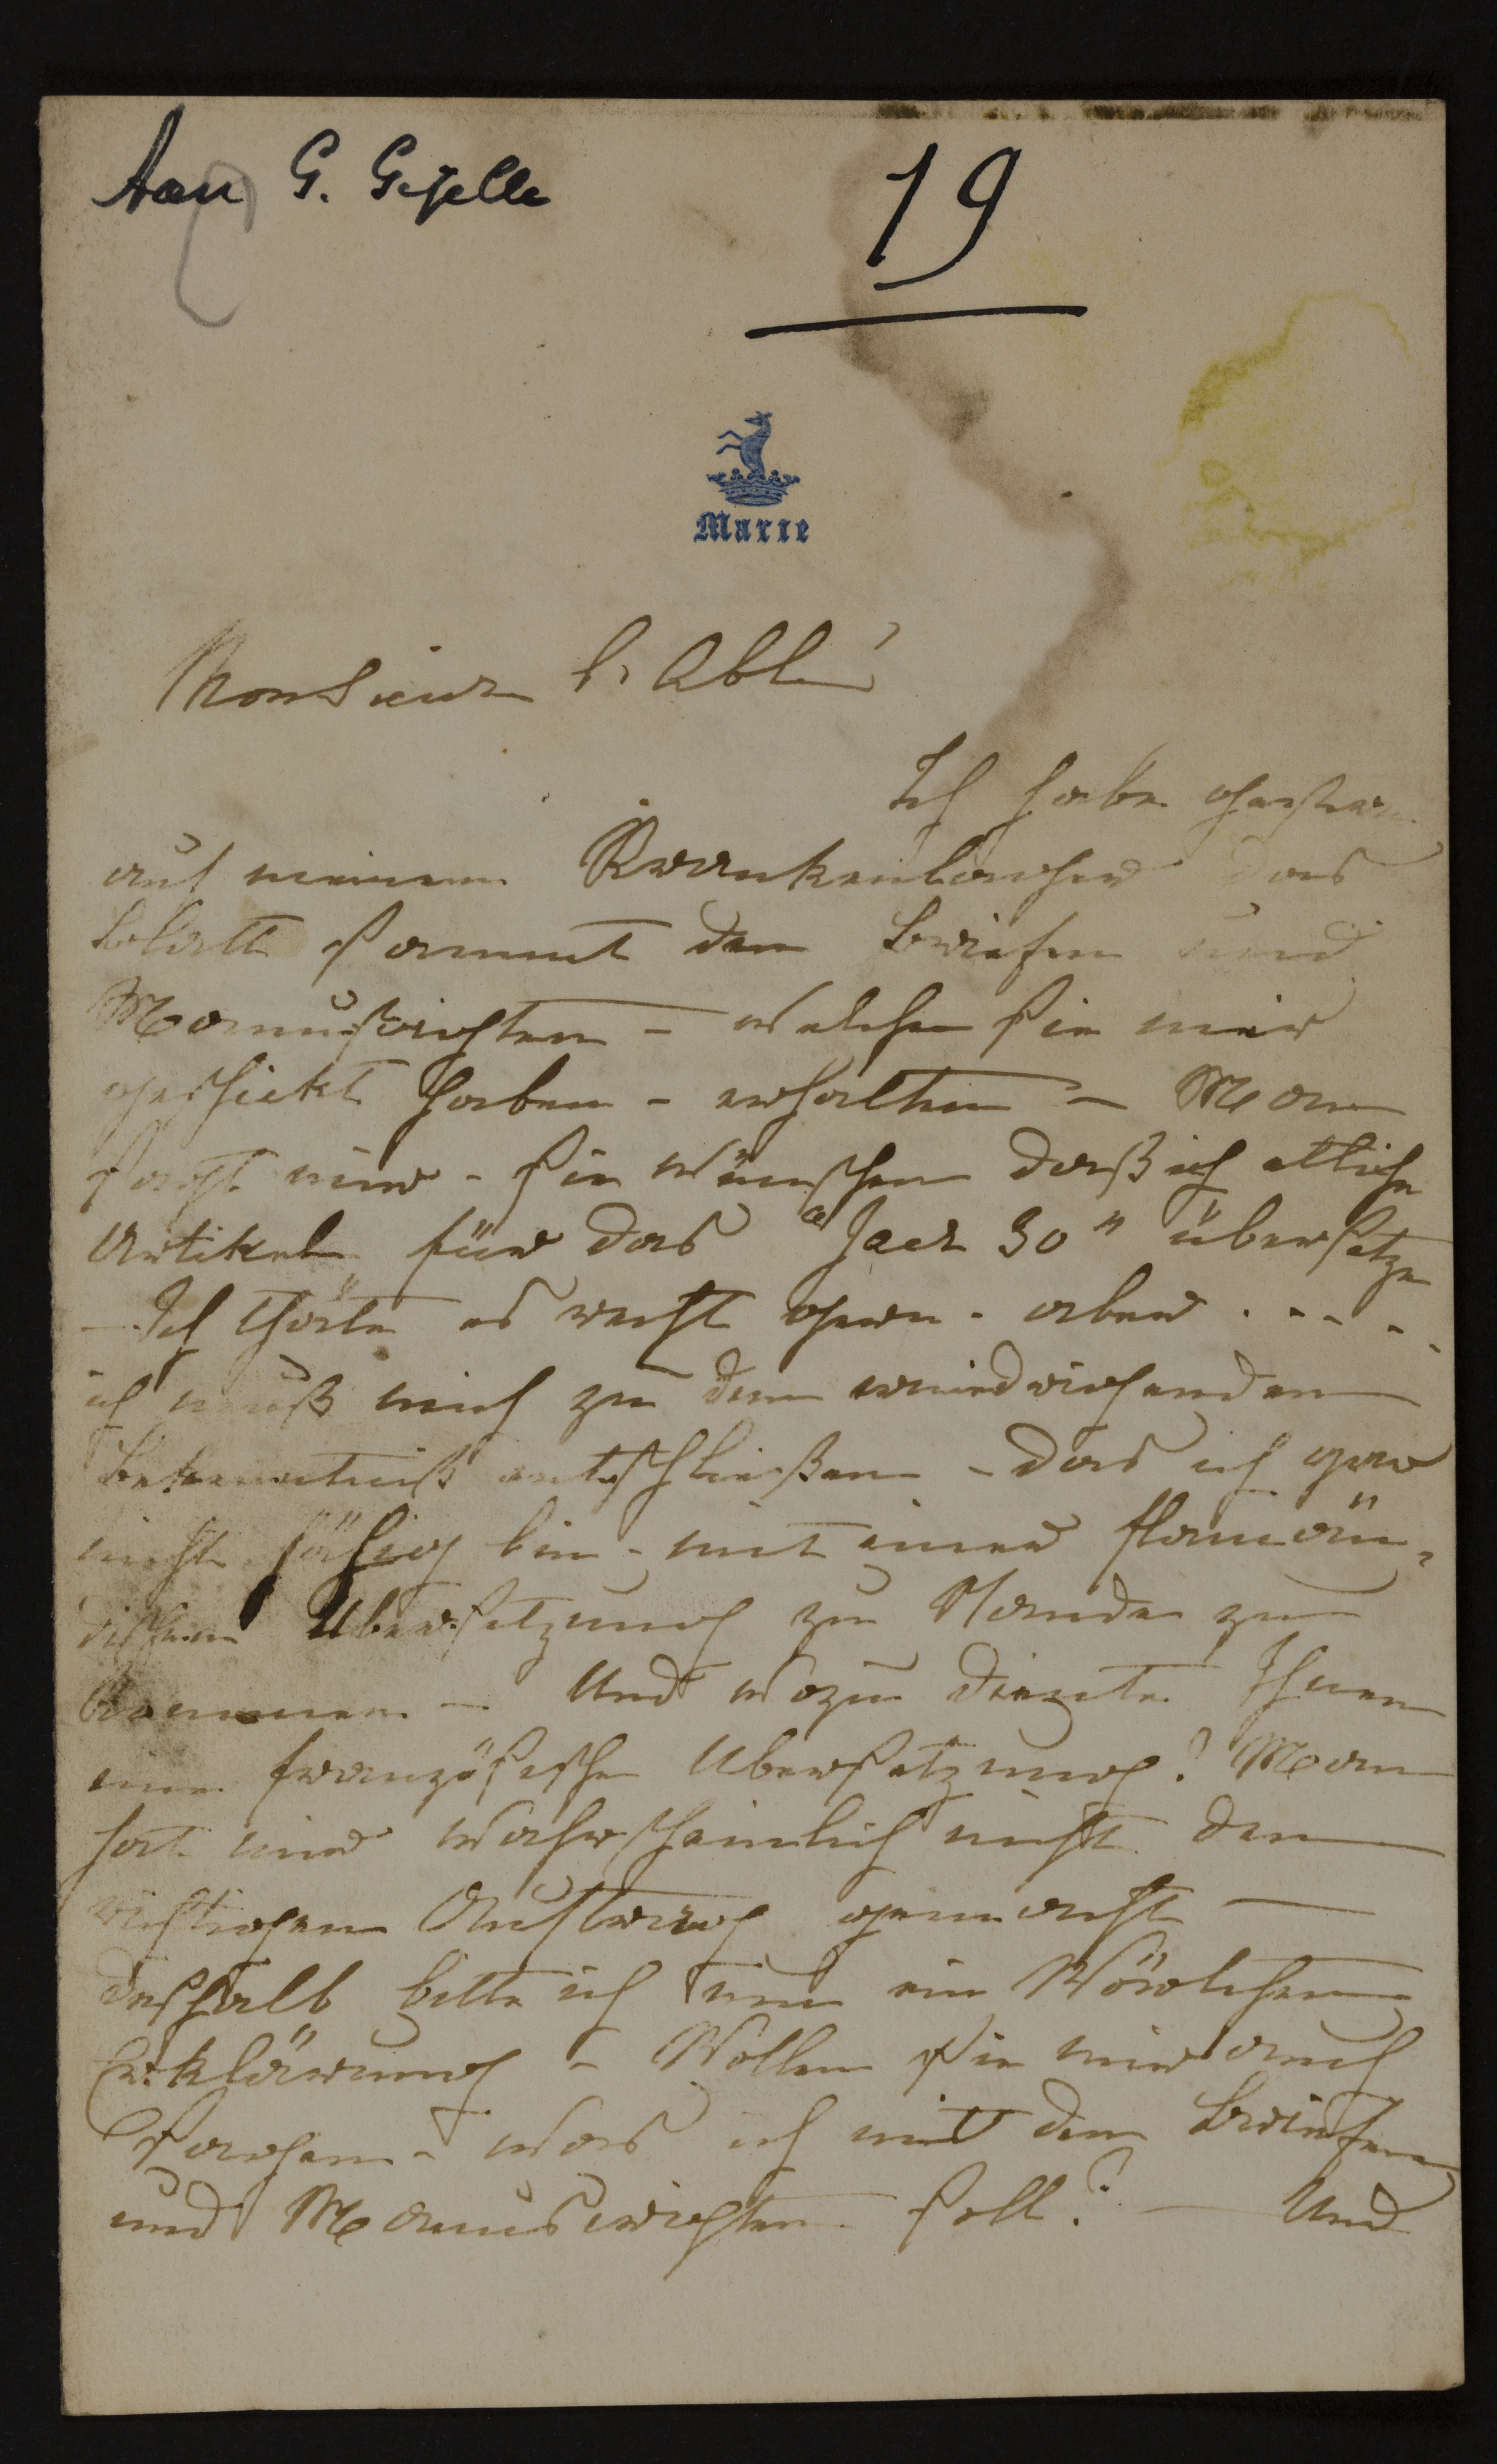 Aan G. Gezelle
19
Marie
Monsieur l'Abbé
Ich habe gestern
auf meinem Krankenlager das
Blatt sammt den Briefen und
Manuskripten – welche Sie mir
geschickt haben – erhalten – Man
sagt mir – Sie wünschen daß ich etliche
Artikel für das "Jaer 30" übersetze
– Ich thäte es recht gern – aber . . . .
ich muß mich zu dem
Bekenntniß entschließen – das ich gar
nicht fähig bin – mit einer flamän-
dischen Übersetzung zu Stande zu
kommen – Und wozu diente Ihnen
eine französische Übersetzung? Man
hat mir wahrscheinlich nicht den
richtigen Auftrag gemacht –
deshalb bitte ich um ein Wörtchen
Erklärung – Wollen Sie mir auch
sagen – was ich mit den Briefen
und Manuscripten soll? – Und